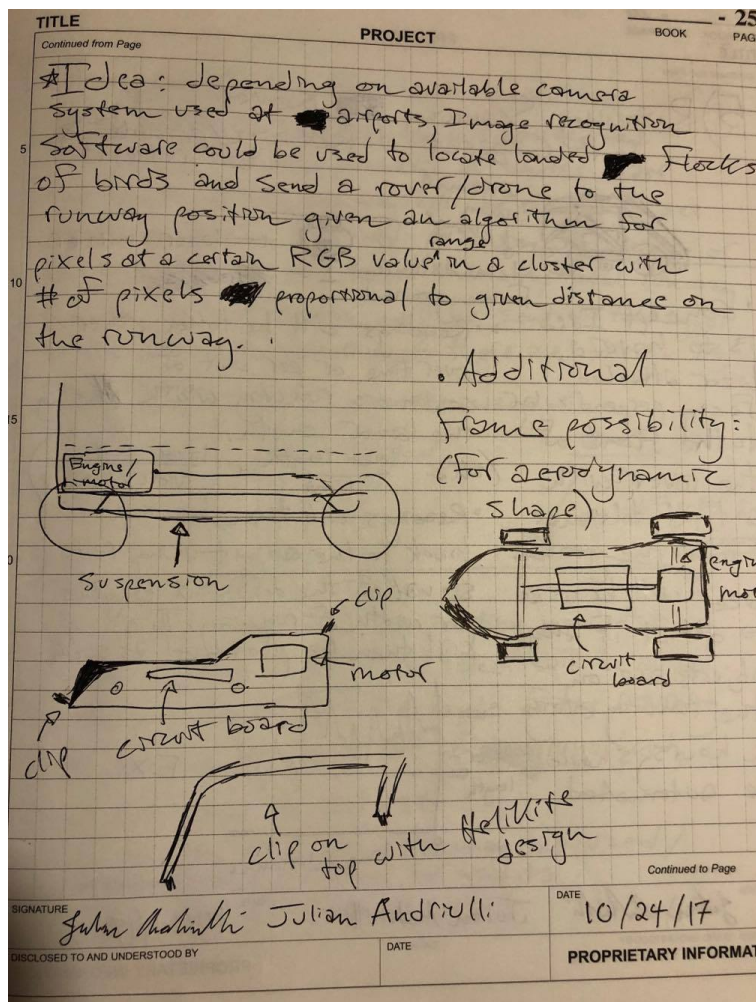 TITLE
PROJECT
BOOK
- 25
PAG
Continued from Page
*Idea: depending on available camera
system used at airports, Image recognition
5 Software could be used to locate landed Flocks
of birds and send a rover/drone to the
runway position given an algorithm for
pixels at a certain RGB value ^range in a cluster with
10 # of pixels proportional to given distance on
the runway.
. Additional
15 Frame possibility:
(for aerodynamic
shape)
Engine/
motor
suspension
engin
mot
circuit
board
clip
motor
clip
circuit board
clip on
top with Helikite
design
Continued to Page
SIGNATURE
Julian Andriulli
DATE
10/24/17
DISCLOSED TO AND UNDERSTOOD BY
DATE
PROPRIETARY INFORMAT